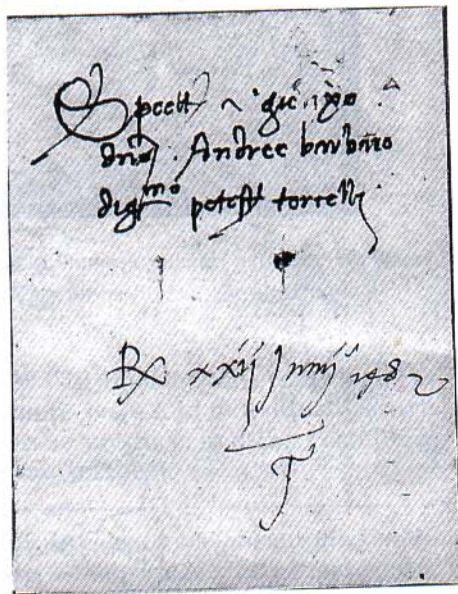 Spect
dno . Andree barbaro
dig mo potest torcelli
Rx xxij Junij 1482
T